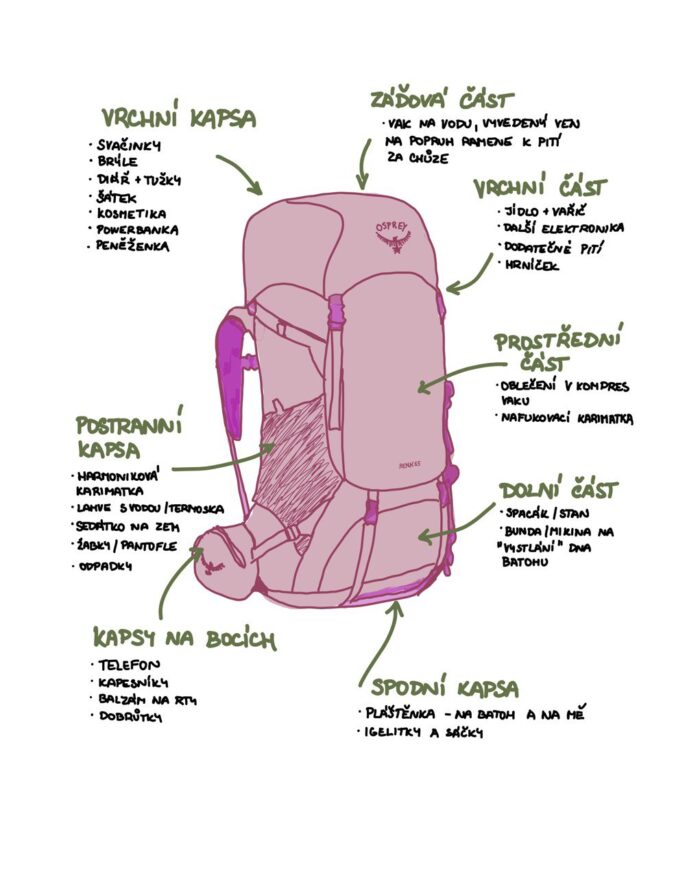 VRCHNÍ KAPSA
· SVAČINKY
· BRÝLE
· DIÁŘ + TUŽKY
· ŠÁTEK
· KOSMETIKA
· POWERBANKA
· PENĚŽENKA
ZÁĎOVÁ ČÁST
· VAK NA VODU, VYVEDENÝ VEN
NA POPRUH RAMENE K PITÍ
ZA CHŮZE
VRCHNÍ ČÁST
· JÍDLO + VAŘIČ
· DALŠÍ ELEKTRONIKA
· DODATEČNÉ PITÍ
· HRNÍČEK
OSPREY
PROSTŘEDNÍ
ČÁST
· OBLEČENÍ V KOMPRES
VAKU
· NAFUKOVACÍ KARIMATKA
POSTRANNÍ
KAPSA
· HARMONIKOVÁ
KARIMATKA
· LAHVE S VODOU / TERMOSKA
· SEDÁTKO NA ZEM
· ŽABKY / PANTOFLE
· ODPADKY
DOLNÍ ČÁST
· SPACÁK / STAN
· BUNDA / MIKINA NA
"VYSTLÁNÍ" DNA
BATOHU
KAPSY NA BOCÍCH
· TELEFON
· KAPESNÍKY
· BALZÁM NA RTY
· DOBRŮTKY
SPODNÍ KAPSA
· PLÁŠTĚNKA - NA BATOH A NA MĚ
· IGELITKY A SÁČKY